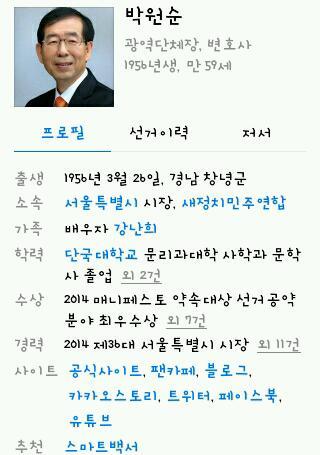 박원순
광역단체장, 변호사
1956년생, 만 59세
프로필 선거이력 저서
출생 1956년 3월 26일, 경남 창녕군
소속 서울특별시 시장, 새정치민주연합
가족 배우자 강난희
학력 단국대학교 문리과대학 사학과 문학
사 졸업 외 2건
수상 2014 매니페스토 약속대상 선거공약
분야 최우수상 외 7건
경력 2014 제36대 서울특별시 시장 외 11건
사이트 공식사이트, 팬카페, 블로그,
카카오스토리, 트위터, 페이스북,
유튜브
추천 스마트백서